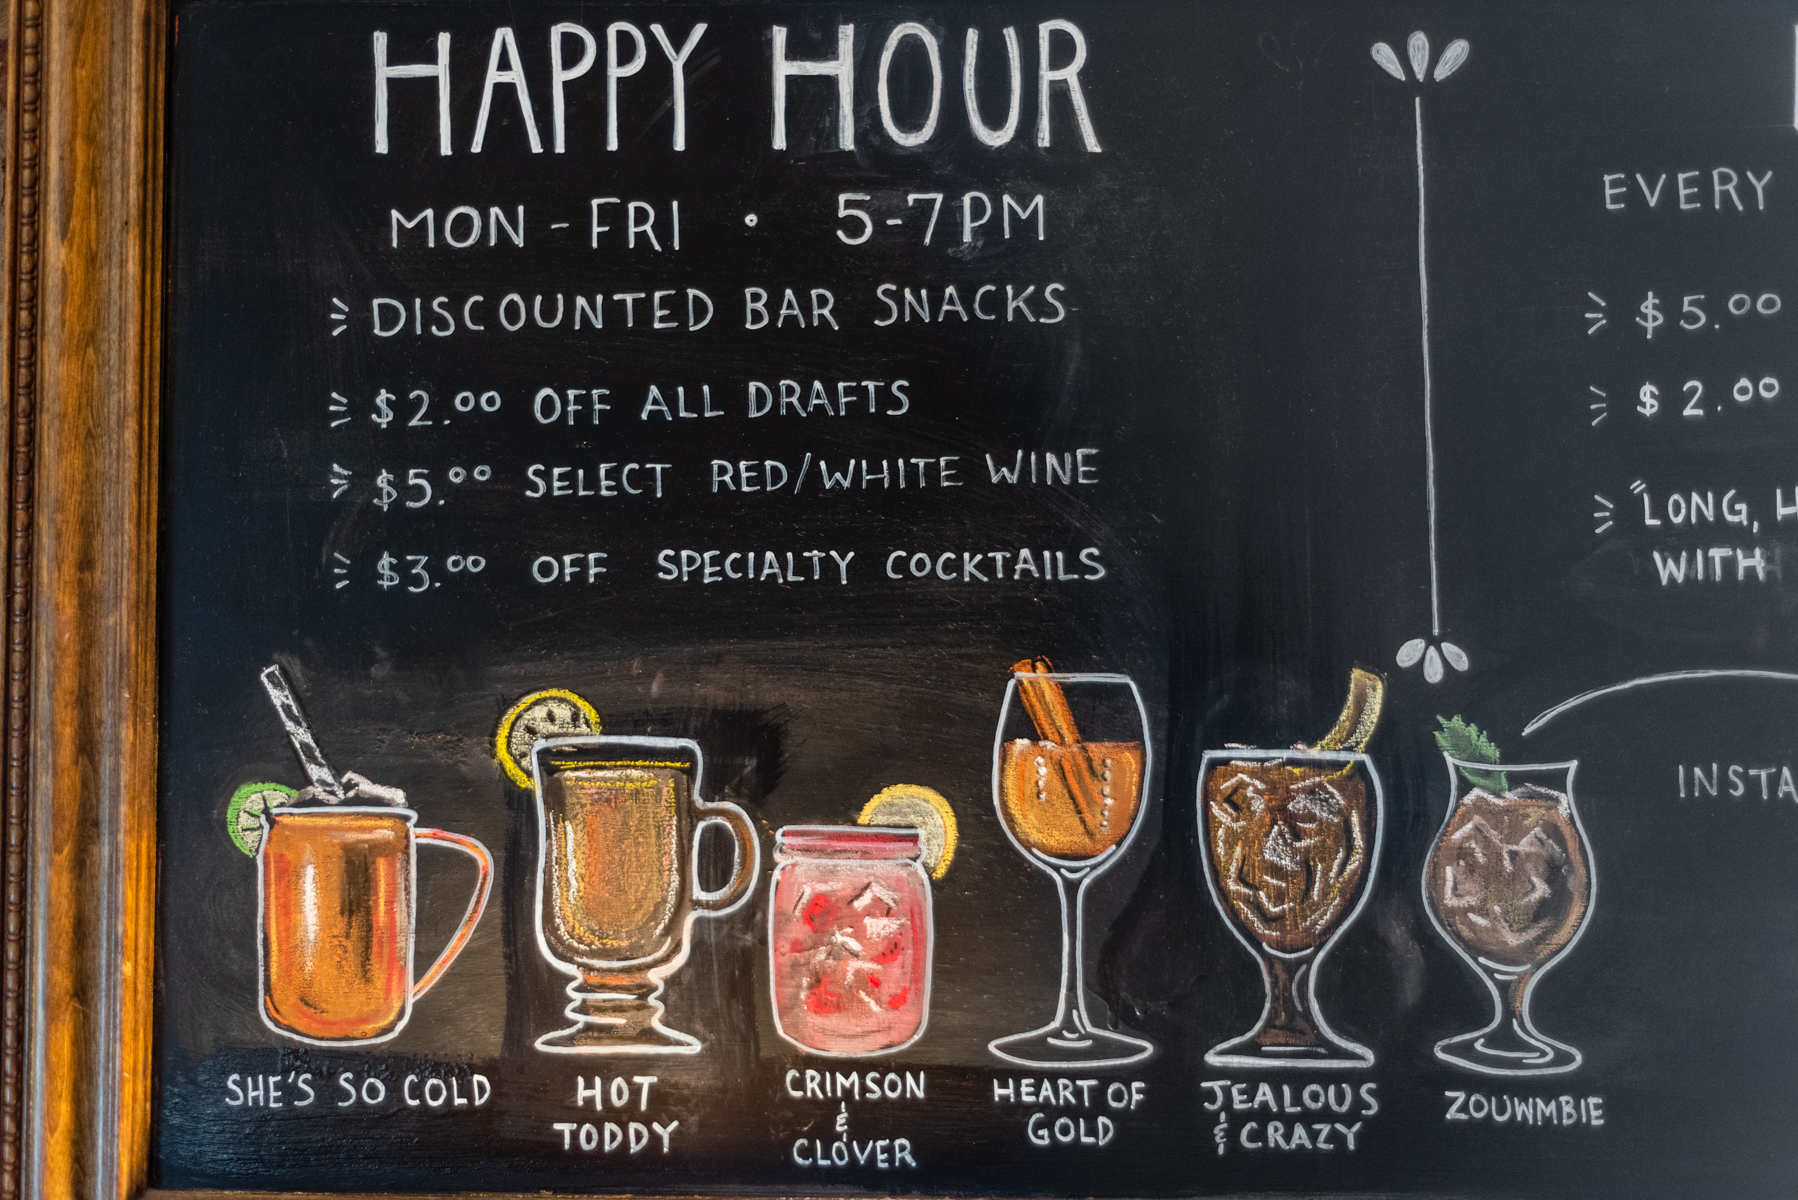 HAPPY HOUR
MON - FRI • 5-7PM
DISCOUNTED BAR SNACKS
$2.00 OFF ALL DRAFTS
$5.00 SELECT RED/WHITE WINE
$3.00 OFF SPECIALTY COCKTAILS
SHE'S SO COLD
HOT
TODDY
CRIMSON
&
CLOVER
HEART OF
GOLD
JEALOUS
& CRAZY
ZOUWMBIE
EVERY
$5.00
$2.00
"LONG,
WITH